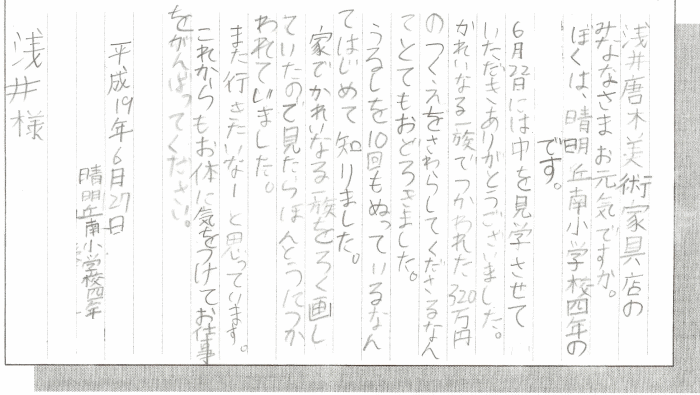 浅井唐木美術家具店の
みななさまお元気ですか。
ぼくは、晴明丘南小学校四年の
です。
6月22日には中を見学させて
いただきありがとうございました。
かれいなる一族でつかわれた320万円
のつくえをさわらしてくださるなん
てとてもおどろきました。
うるしを10回もぬっているなん
てはじめて知りました。
家でかれいなる一族をろく画し
ていたので見たらほんとうにつか
われていました。
また行きたいなーと思っています。
これからもお体に気をつけてお仕事
をがんばってください。
平成19年6月27日
晴明丘南小学校四年
浅井様